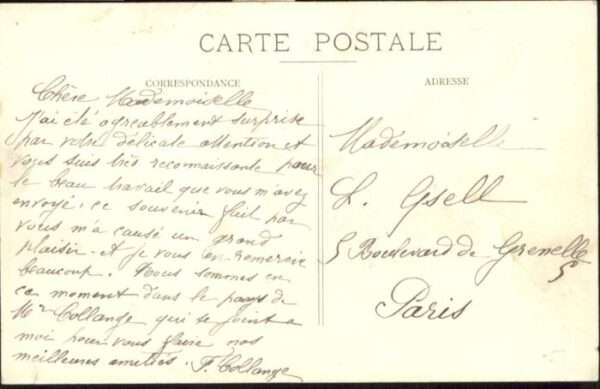 CARTE POSTALE
CORRESPONDANCE
Chère Mademoiselle
J'ai été agréablement surprise
par votre délicate attention et
vous suis très reconnaissante pour
le beau travail que vous m'avez
envoyé, ce souvenir fait par
vous m'a causé un grand
plaisir. et je vous en remercie
beaucoup. Nous sommes en
ce moment dans le pays de
Mr Collange qui se joint a
moi pour vous faire nos
meilleures amitiés. F. Collange
ADRESSE
Mademoiselle
L. Gsell
5 Boulevard de Grenelle
5
Paris